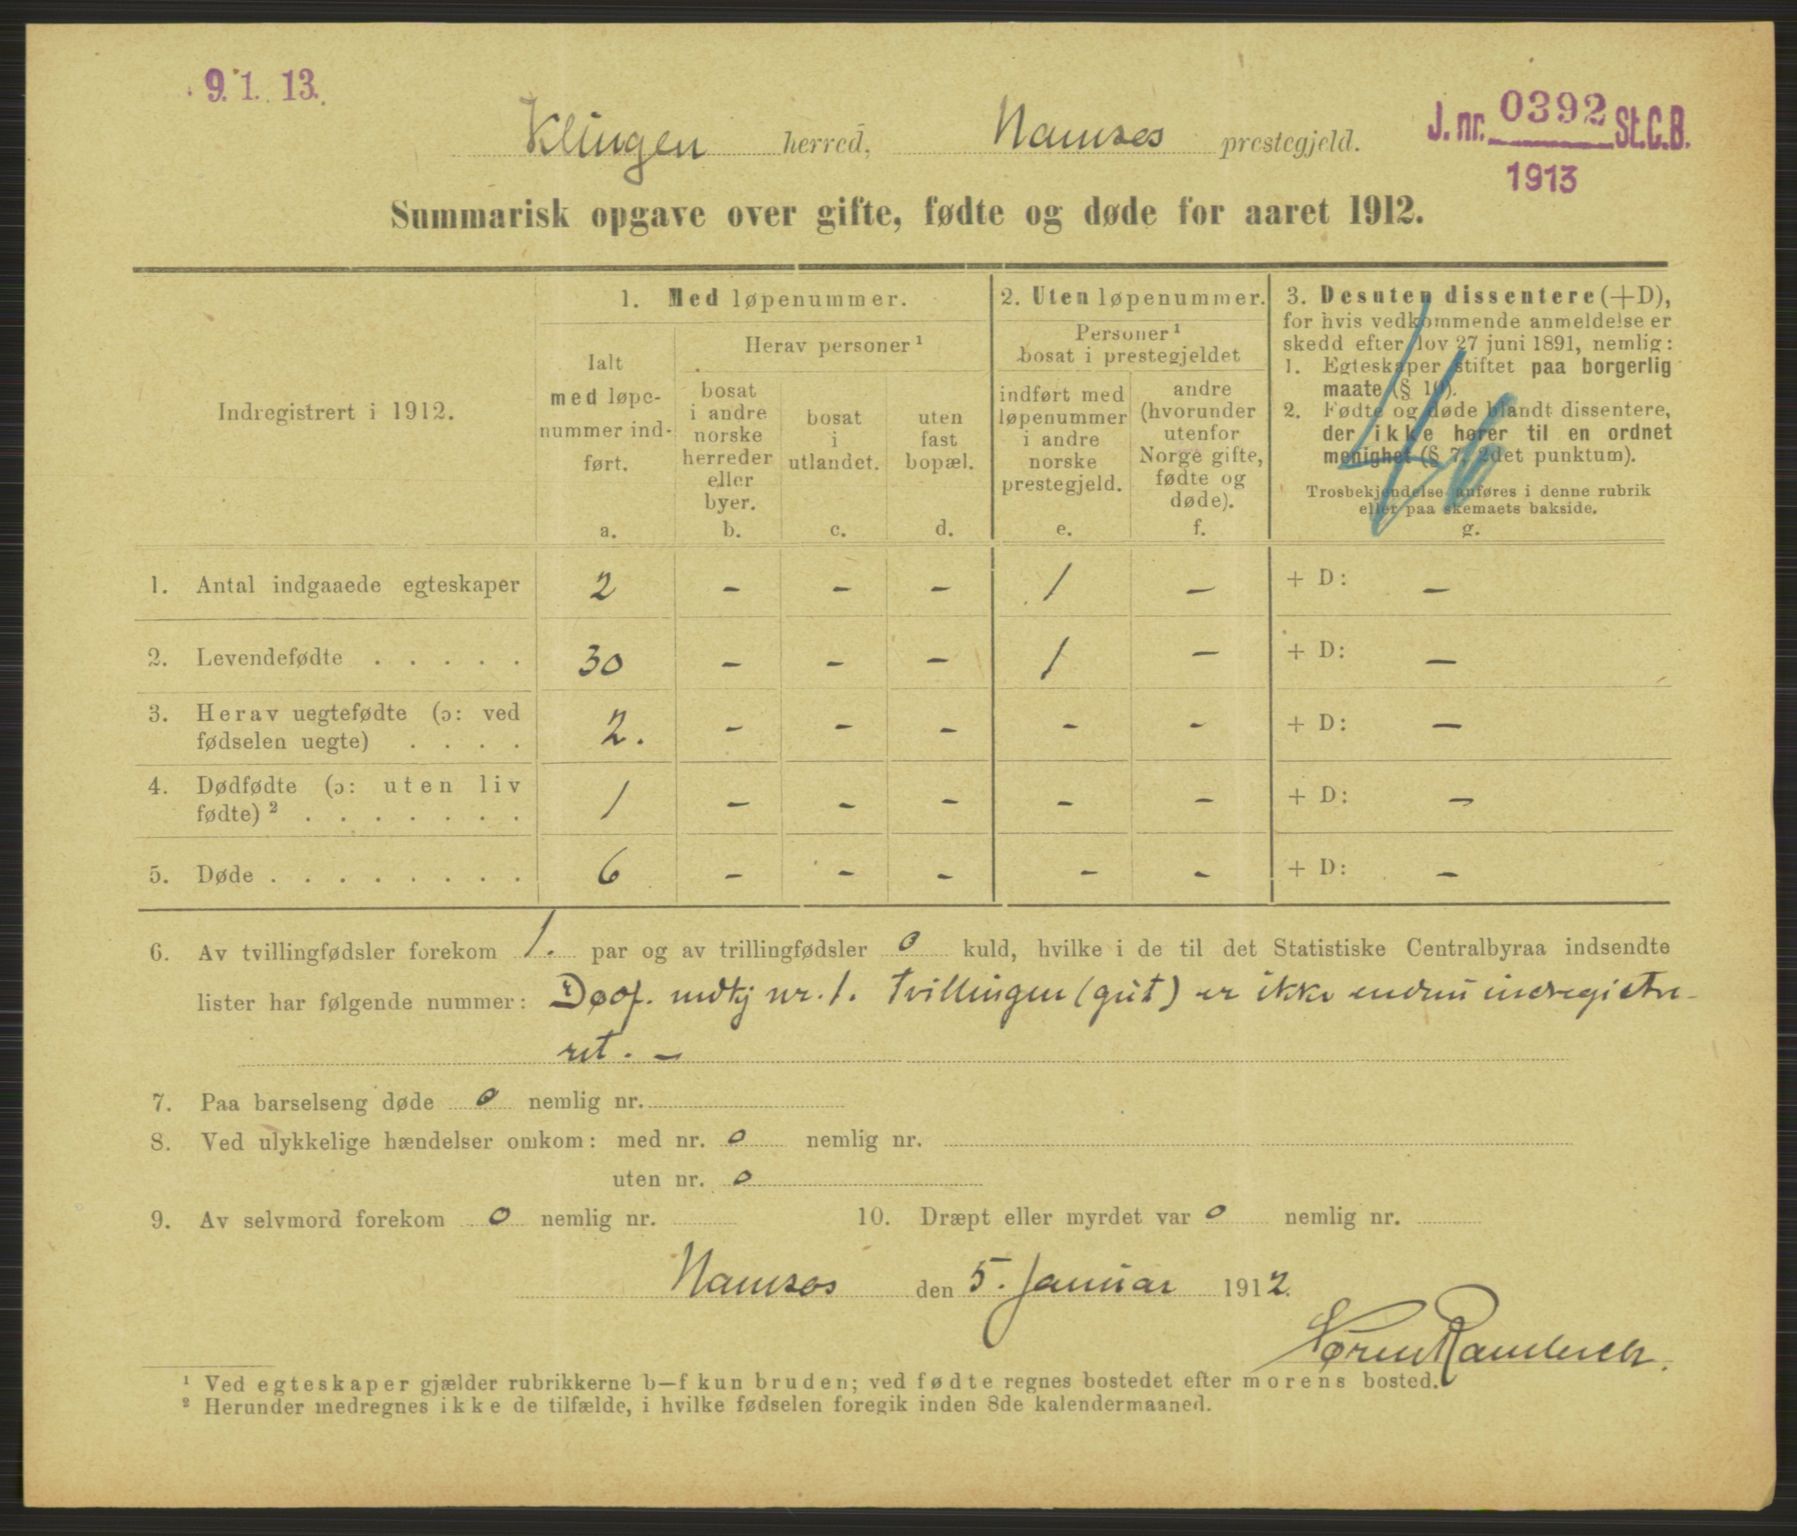 9. 1. 13.
J. nr. 0392 St.C.B.
1913
Klingen herred, Namsos prestegjeld.
Summarisk opgave over gifte, fødte og døde for aaret 1912.
Indregistrert i 1912.
1. Med løpenummer.
Ialt
med løpe-
nummer ind-
ført.
a.
Herav personer ¹
bosat
i andre
norske
herreder
eller
byer.
b.
bosat
i
utlandet.
c.
uten
fast
bopæl.
d.
2. Uten løpenummer.
Personer ¹
bosat i prestegjeldet
indført med
løpenummer
i andre
norske
prestegjeld.
e.
andre
(hvorunder
utenfor
Norge gifte,
fødte og
døde).
f.
3. Desuten dissentere (+D),
for hvis vedkommende anmeldelse er
skedd efter lov 27 juni 1891, nemlig:
1. Egteskaper stiftet paa borgerlig
maate (§ 10).
2. Fødte og døde blandt dissentere,
der ikke hører til en ordnet
menighet (§ 7, 2det punktum).
Trosbekjendelse anføres i denne rubrik
eller paa skemaets bakside.
g.
1. Antal indgaaede egteskaper 2 – – – 1 – + D: –
2. Levendefødte . . . . . 30 – – – 1 – + D: –
3. Herav uegtefødte (ɔ: ved
fødselen uegte) . . . . 2. – – – – – + D: –
4. Dødfødte (ɔ: uten liv
fødte) ² . . . . . . . 1 – – – – – + D: –
5. Døde . . . . . . . . 6 – – – – – + D: –
6. Av tvillingfødsler forekom 1. par og av trillingfødsler 0 kuld, hvilke i de til det Statistiske Centralbyraa indsendte
lister har følgende nummer: Døof. mdkj nr. 1. Tvillingen (gut) er ikke endnu indregistre-
ret. –
7. Paa barselseng døde 0 nemlig nr.
8. Ved ulykkelige hændelser omkom: med nr. 0 nemlig nr.
uten nr. 0
9. Av selvmord forekom 0 nemlig nr. 10. Dræpt eller myrdet var 0 nemlig nr.
Namsos den 5. Januar 1912.
Søren
¹ Ved egteskaper gjælder rubrikkerne b–f kun bruden; ved fødte regnes bostedet efter morens bosted.
² Herunder medregnes ikke de tilfælde, i hvilke fødselen foregik inden 8de kalendermaaned.